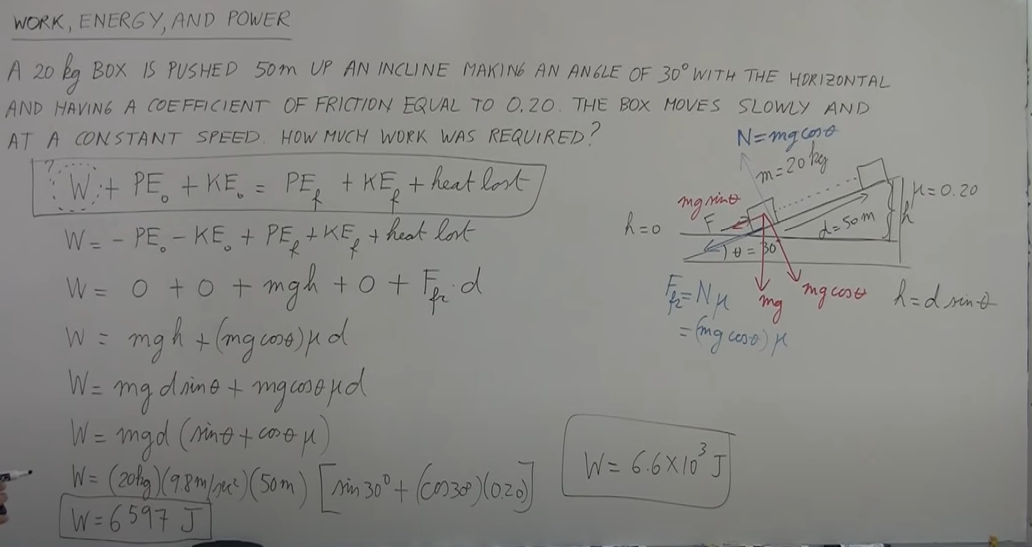 WORK, ENERGY, AND POWER
A 20 kg BOX IS PUSHED 50m UP AN INCLINE MAKING AN ANGLE OF 30° WITH THE HORIZONTAL
AND HAVING A COEFFICIENT OF FRICTION EQUAL TO 0.20. THE BOX MOVES SLOWLY AND
AT A CONSTANT SPEED. HOW MUCH WORK WAS REQUIRED?
?
W + PE₀ + KE₀ = PE_f + KE_f + heat lost
W = - PE₀ - KE₀ + PE_f + KE_f + heat lost
W = 0 + 0 + mgh + 0 + F_fr · d
W = mgh + (mg cosθ) μ d
W = mg d sinθ + mg cosθ μ d
W = mgd (sinθ + cosθ μ)
W = (20kg)(9.8 m/sec²)(50m) [sin 30° + (cos 30°)(0.20)]
W = 6597 J
W = 6.6 X 10³ J
N = mg cosθ
m = 20 kg
mg sinθ
F
μ = 0.20
h = 0
d = 50m
h
θ = 30°
F_fr = N μ
= (mg cosθ) μ
mg
mg cosθ
h = d sinθ